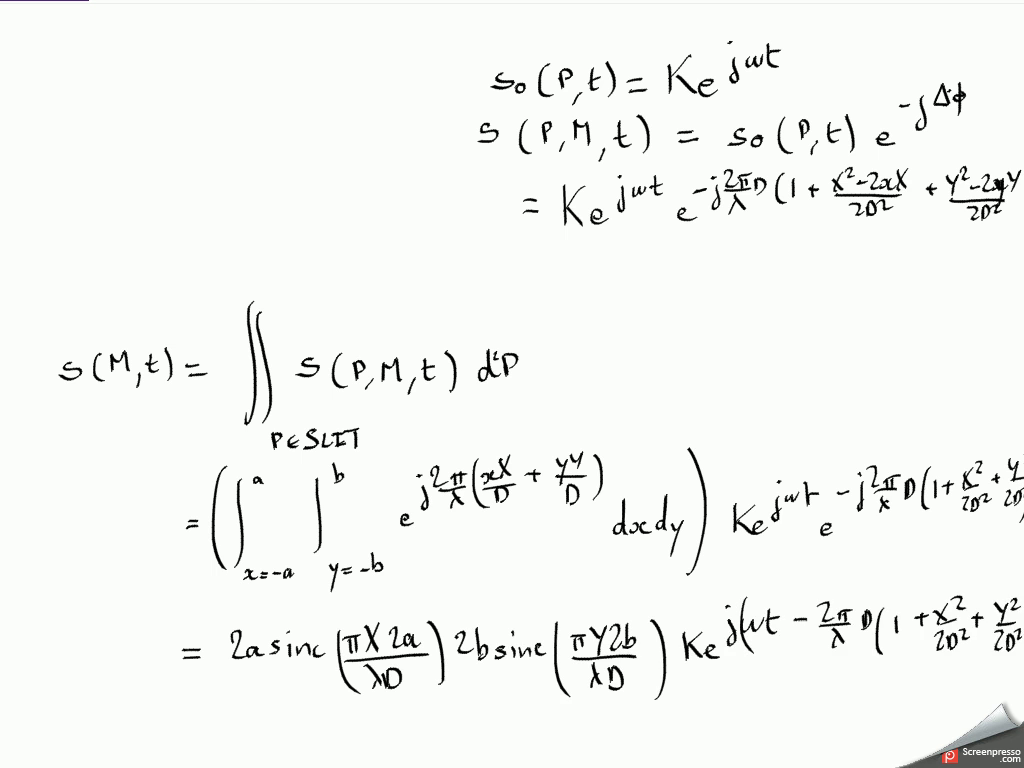 s₀(P,t) = K e^{jωt}
s(P,M,t) = s₀(P,t) e^{-jΔφ}
= K e^{jωt} e^{-j\frac{2π}{λ}D(1 + \frac{X²-2xX}{2D²} + \frac{Y²-2yY}{2D²}}
s(M,t) = ∬_{P∈SLIT} s(P,M,t) d²P
= (∫_{x=-a}^{a} ∫_{y=-b}^{b} e^{j\frac{2π}{λ}(\frac{xX}{D} + \frac{yY}{D})} dx dy) K e^{jωt} e^{-j\frac{2π}{λ}D(1 + \frac{X²}{2D²} + \frac{Y²}{2D²}}
= 2a sinc(\frac{πX2a}{λD}) 2b sinc(\frac{πY2b}{λD}) K e^{j(ωt - \frac{2π}{λ}D(1 + \frac{X²}{2D²} + \frac{Y²}{2D²}}
Screenpresso
.com